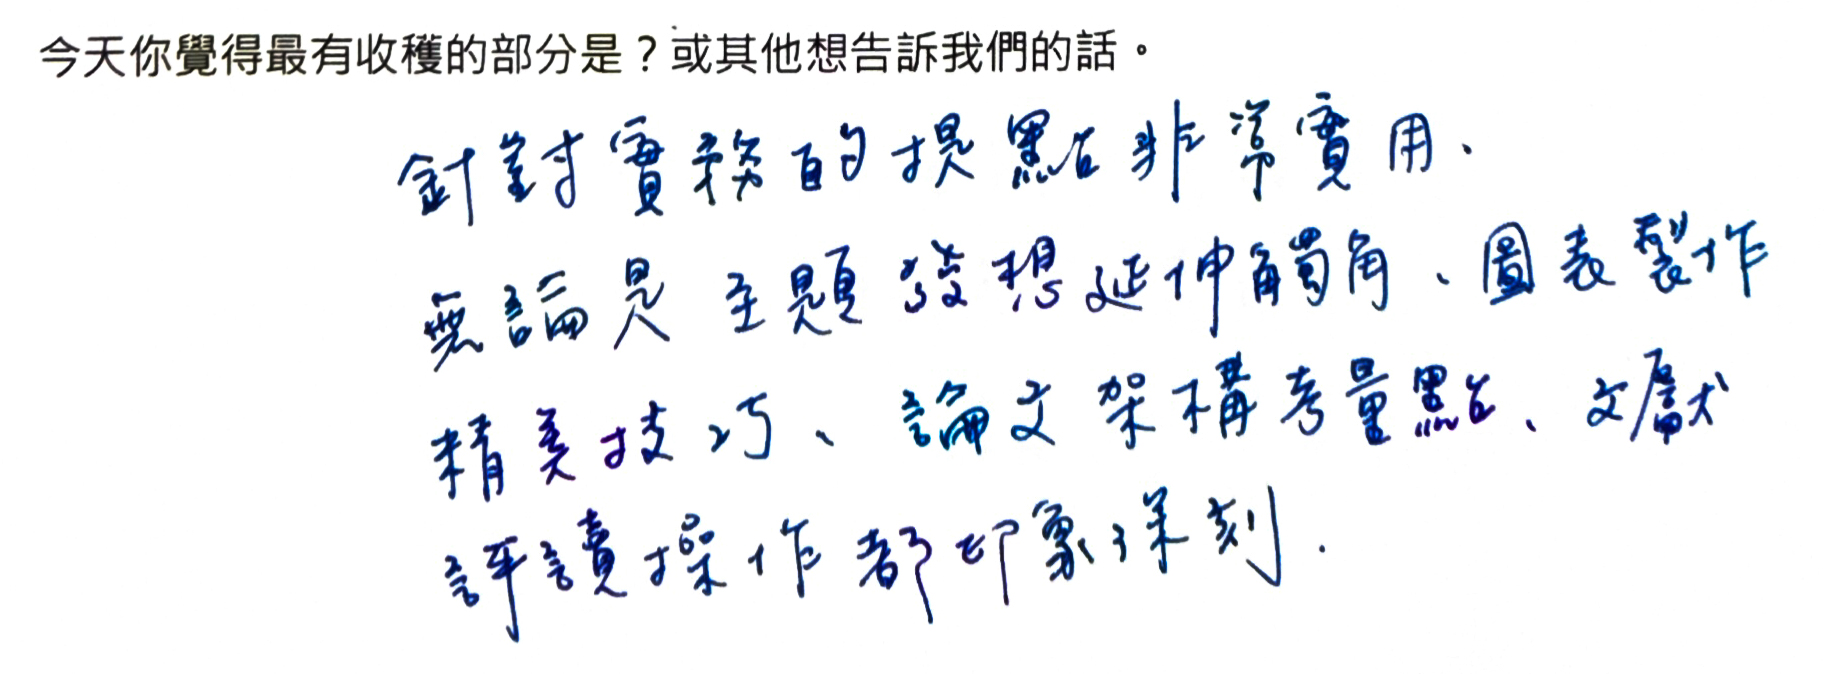 今天你覺得最有收穫的部分是？或其他想告訴我們的話。
針對實務的提點非常實用.
無論是主題發想延伸觸角、圖表製作
精美技巧、論文架構考量點、文獻
評讀操作都印象深刻.